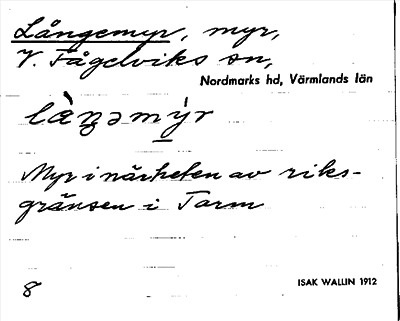 Långemyr, myr,
V. Fågelviks sn,
Nordmarks hd, Värmlands län
làŋəmýr
Myr i närheten av riks-
gränsen i Tarm
8
ISAK WALLIN 1912